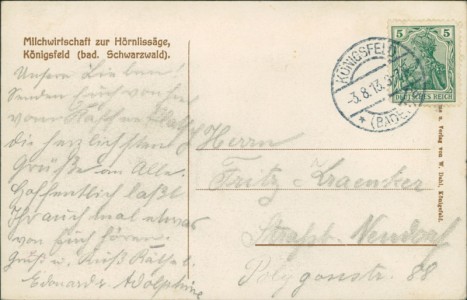 Milchwirtschaft zur Hörnlissäge,
Königsfeld (bad. Schwarzwald).
Unsere Lieben!
Senden Euch von hier
von Käthe
die herzlichsten
Grüße an Alle.
Hoffentlich laßt
Ihr auch mal etwas
von Euch hören.
Gruß u. Kuß Käthe
Edouard u. Adolphine
KÖNIGSFELD
-3.8.13.
* (BADEN)
5 5
DEUTSCHES REICH
u. Verlag von W. Dahl, Königsfeld.
Herrn
Fritz Kraenker
Straßb. Neudorf
Polygonstr. 88